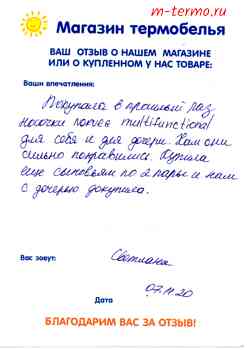 m-termo.ru
Магазин термобелья
ВАШ ОТЗЫВ О НАШЕМ МАГАЗИНЕ
ИЛИ О КУПЛЕННОМ У НАС ТОВАРЕ:
Ваши впечатления:
Покупала в прошлый раз
носочки norveg multifunctional
для себя и для дочери. Нам они
сильно понравились. Купила
еще сыновьям по 2 пары и нам
с дочерью докупила.
Вас зовут: Светлана
07.11.20
Дата
БЛАГОДАРИМ ВАС ЗА ОТЗЫВ!